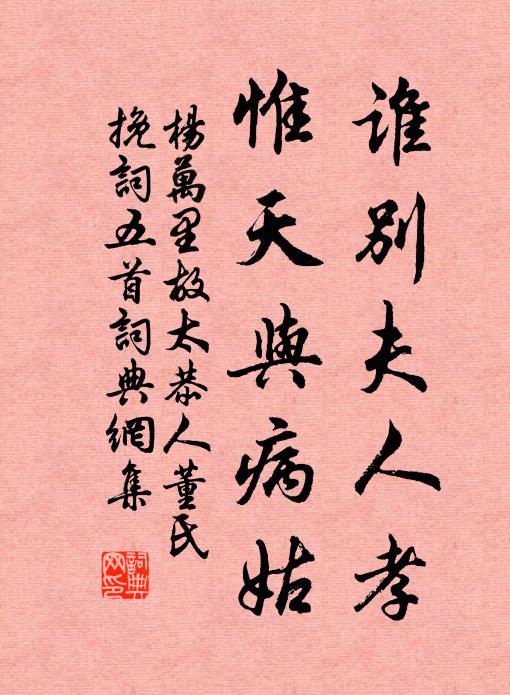 誰別夫人孝
惟天與病姑
楊萬里故太恭人董氏
挽詞五首詞典網集
詞典
网印